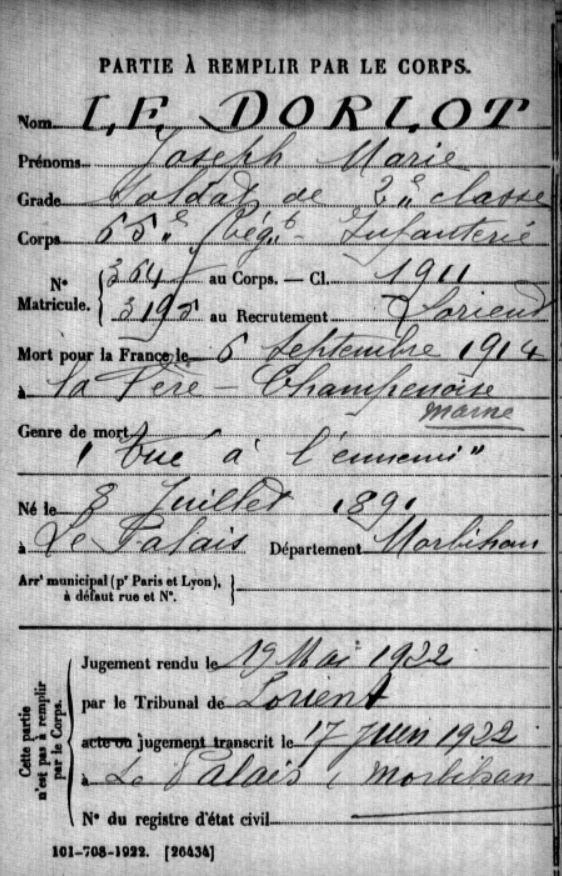 PARTIE À REMPLIR PAR LE CORPS.
Nom LE DORLOT
Prénoms Joseph Marie
Grade Soldat de 2e classe
Corps 65e Régt Infanterie
N° Matricule. { 364 au Corps. — Cl. 1911
3195 au Recrutement Lorient
Mort pour la France le 6 Septembre 1914
à La Fère - Champenoise
Marne
Genre de mort
"tué à l'ennemi"
Né le 8 Juillet 1891
à Le Palais Département Morbihan
Arrt municipal (pr Paris et Lyon), }
à défaut rue et N°.
Cette partie n'est pas à remplir par le Corps.
Jugement rendu le 19 Mai 1922
par le Tribunal de Lorient
acte ou jugement transcrit le 17 Juin 1922
à Le Palais, Morbihan
N° du registre d'état civil
101-708-1922. [26434]